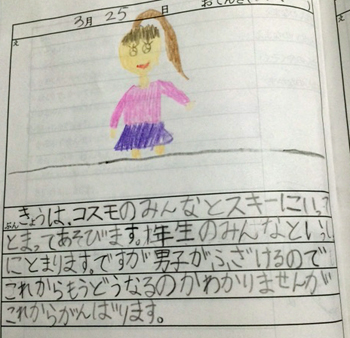 3月 25 日 おてんき
え
ぶん
きょうは、コスモのみんなとスキーにいって
とまってあそびます。1年生のみんなといっしょ
にとまります。ですが男子がふざけるので
これからもうどうなるのかわかりませんが
これからがんばります。